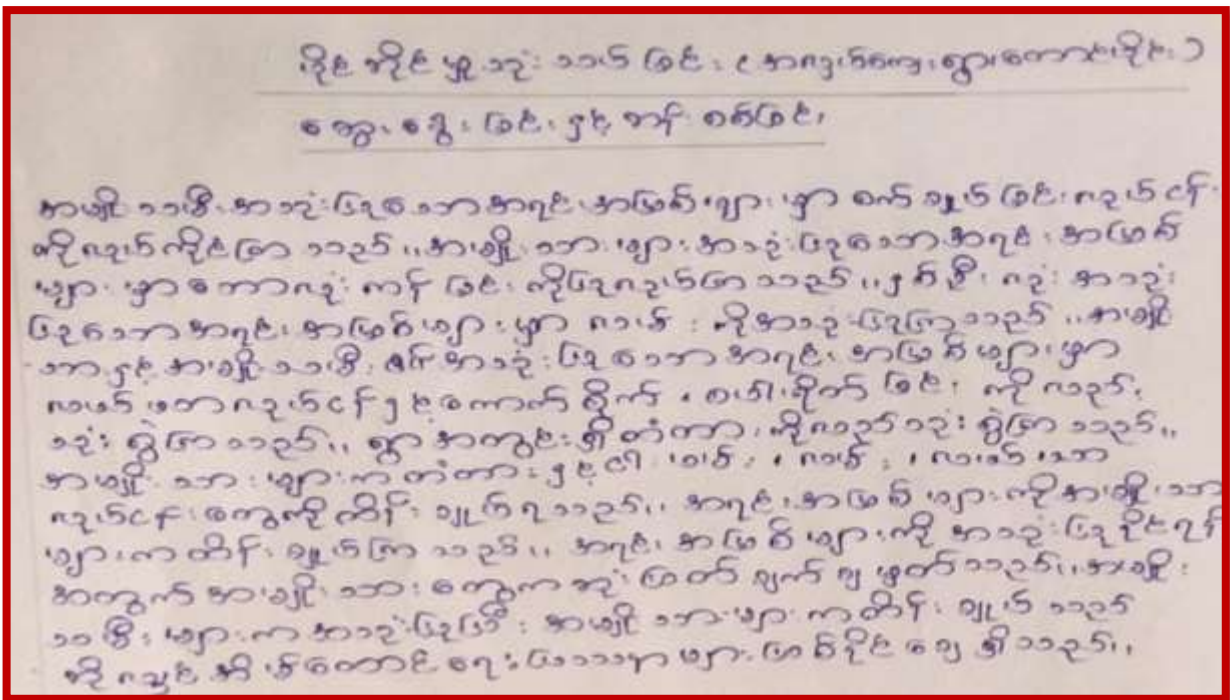 ပိုင်ဆိုင်မှု သုံးသပ်ခြင်း ( အလယ်ကျေးရွာတောင်ပိုင်း )
ဆွေးနွေးခြင်း နှင့် ဆန်းစစ်ခြင်း
အမျိုးသမီး အသုံးပြုသော အရင်းအမြစ်များမှာ စက်ချုပ်ခြင်း လုပ်ငန်း
ကိုလုပ်ကိုင်ကြသည်။ အမျိုးသားများ အသုံးပြုသော အရင်းအမြစ်
များမှာ ကန်ခြင်း ကိုပြုလုပ်ကြသည်။ နှစ်ဦးလုံး အသုံး
ပြုသော အရင်းအမြစ်များမှာ လမ်း ကိုအသုံးပြုကြသည်။ အမျိုး
သား နှင့် အမျိုးသမီး အသုံးပြုသော အရင်းအမြစ်များမှာ
လုပ်ငန်းနှင့် ကောက်စိုက် ၊ စပါးစိုက်ခြင်း ကိုလည်း
သုံးစွဲကြသည်။ ရွာအတွင်းရှိ တံတားကိုလည်း သုံးစွဲကြသည်။
အမျိုးသားများက တံတားနှင့် ၊ လမ်း ၊
လုပ်ငန်းတွေကို ထိန်းချုပ်ရသည်။ အရင်းအမြစ်များကို အမျိုးသား
များက ထိန်းချုပ်ကြသည်။ အရင်းအမြစ်များကို အသုံးပြုနိုင်ရန်
အတွက် အမျိုးသားတွေက ဆုံးဖြတ်ချက်ချမှတ်သည်။ အမျိုး
သမီးများက အသုံးပြုပြီး အမျိုးသားများက ထိန်းချုပ်သည်
ဆိုလျှင် အိမ်ထောင်ရေး ပြဿနာများ ဖြစ်နိုင်ချေရှိသည်။